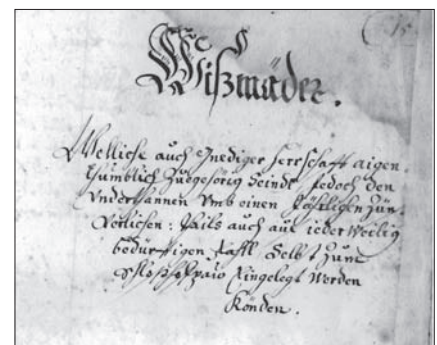 Wißmäder.
Welliche auch Gnediger Herrschafft aigen-
thumblich Zuegehörig Seindt, Jedoch den
Vnderthannen Vmb einen Zünß
Verlichen: thails auch auf iederweilig
bedürfftigen fahl Selbst zum
eingelegt Werden
Könden.